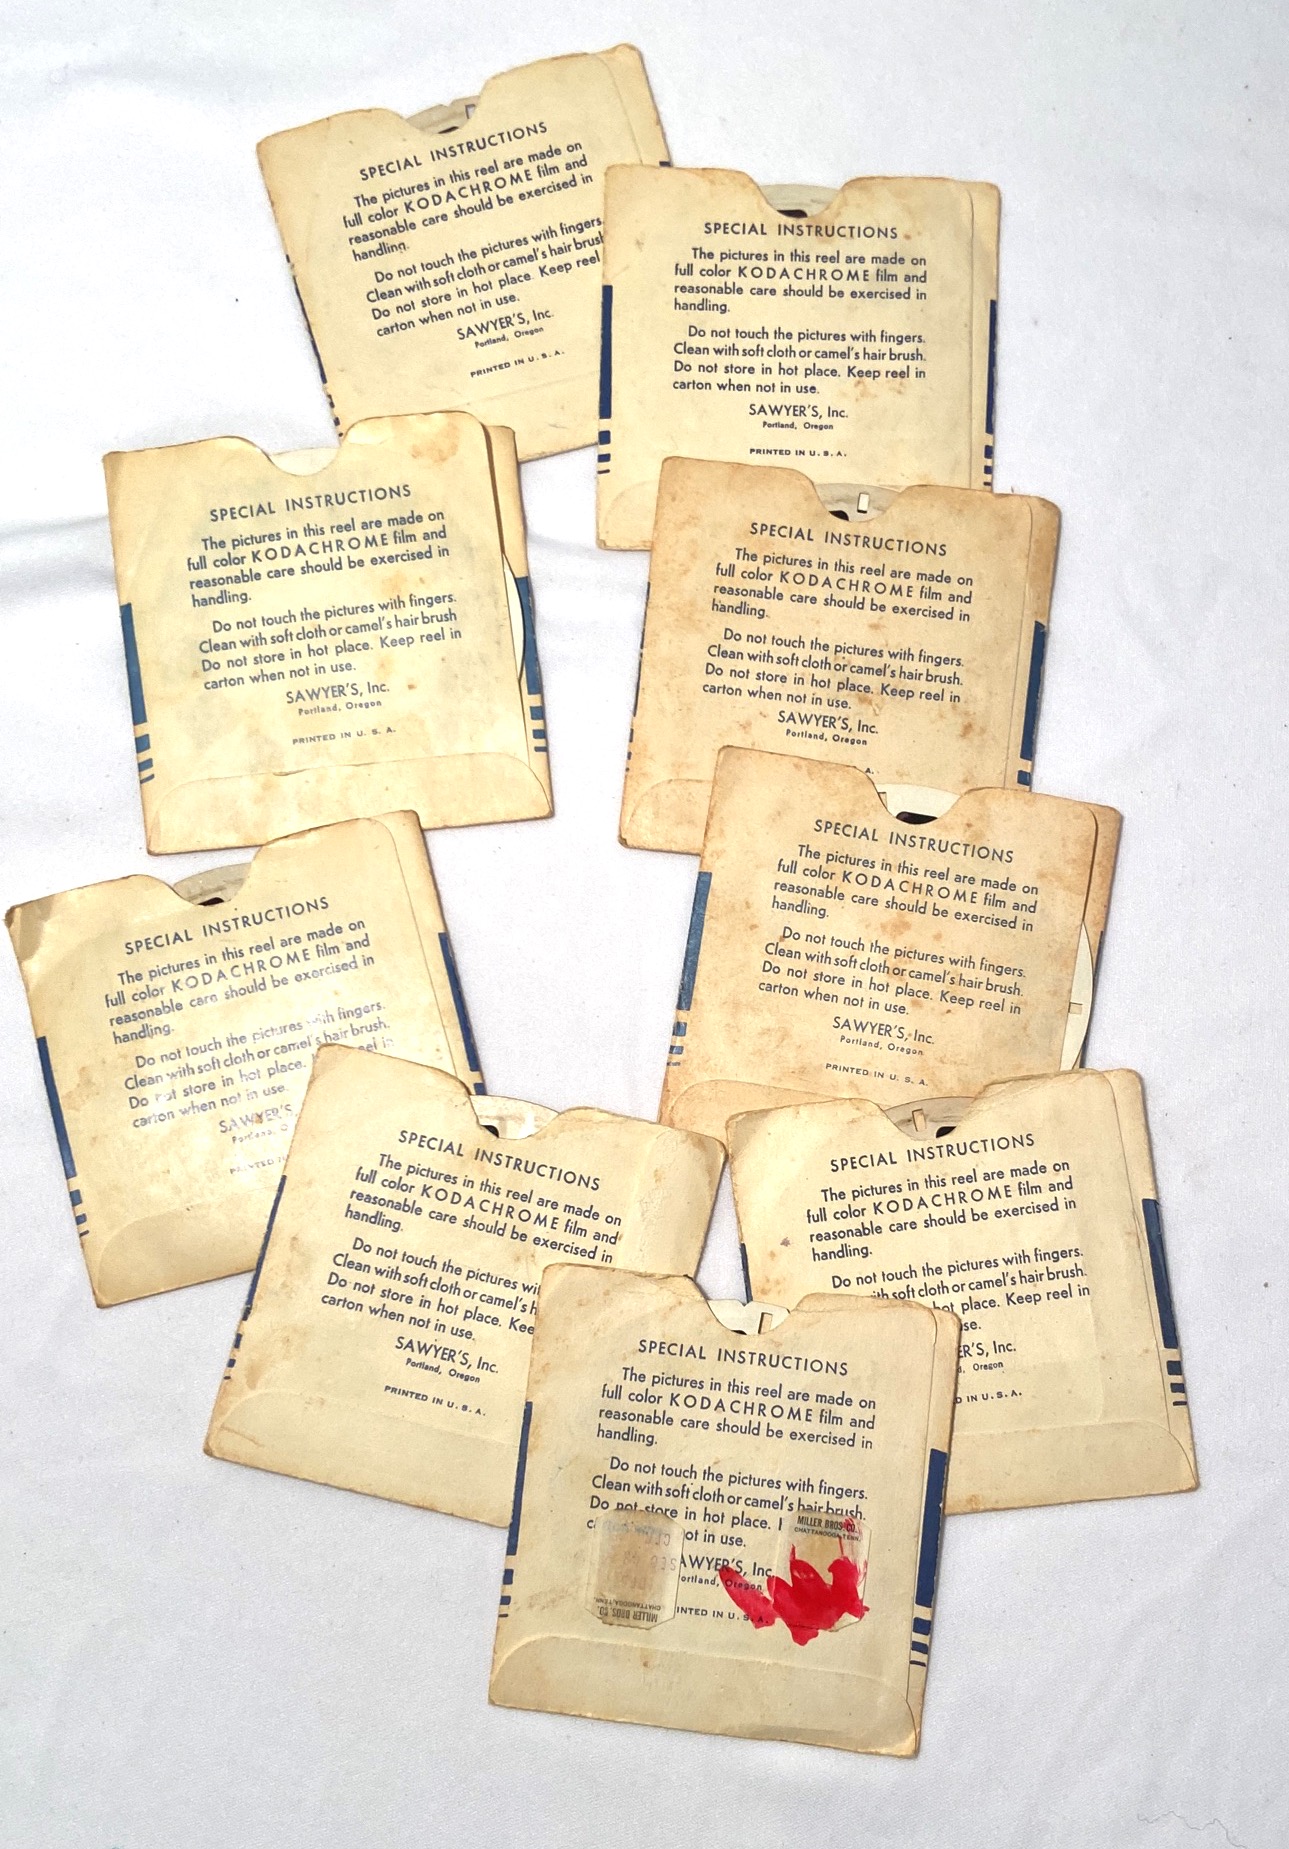 SPECIAL INSTRUCTIONS
The pictures in this reel are made on
full color KODACHROME film and
reasonable care should be exercised in
handling.
Do not touch the pictures with fingers.
Clean with soft cloth or camel's hair brush
Do not store in hot place. Keep reel
carton when not in use.
SAWYER'S, Inc.
Portland, Oregon
PRINTED IN U. S. A.
SPECIAL INSTRUCTIONS
The pictures in this reel are made on
full color KODACHROME film and
reasonable care should be exercised in
handling.
Do not touch the pictures with fingers.
Clean with soft cloth or camel's hair brush.
Do not store in hot place. Keep reel in
carton when not in use.
SAWYER'S, Inc.
Portland, Oregon
PRINTED IN U. S. A.
SPECIAL INSTRUCTIONS
The pictures in this reel are made on
full color KODACHROME film and
reasonable care should be exercised in
handling.
Do not touch the pictures with fingers.
Clean with soft cloth or camel's hair brush
Do not store in hot place. Keep reel in
carton when not in use.
SAWYER'S, Inc.
Portland, Oregon
PRINTED IN U. S. A.
SPECIAL INSTRUCTIONS
The pictures in this reel are made on
full color KODACHROME film and
reasonable care should be exercised in
handling.
Do not touch the pictures with fingers.
Clean with soft cloth or camel's hair brush.
Do not store in hot place. Keep reel in
carton when not in use.
SAWYER'S, Inc.
Portland, Oregon
A.
SPECIAL INSTRUCTIONS
The pictures in this reel are made on
full color KODACHROME film and
reasonable care should be exercised in
handling.
Do not touch the pictures with fingers.
Clean with soft cloth or camel's hair brush.
Do not store in hot place. Keep reel in
carton when not in use.
SAWYER'S, Inc.
Portland, Oregon
PRINTED IN U. S. A.
SPECIAL INSTRUCTIONS
The pictures in this reel are made on
full color KODACHROME film and
reasonable care should be exercised in
handling.
Do not touch the pictures with fingers.
Clean with soft cloth or camel's hair brush.
Do not store in hot place. reel in
carton when not in use.
SAWYER'S,
SPECIAL INSTRUCTIONS
The pictures in this reel are made on
full color KODACHROME film and
reasonable care should be exercised in
handling.
Do not touch the pictures wi
Clean with soft cloth or camel's h
Do not store in hot place. Kee
carton when not in use.
SAWYER'S, Inc.
Portland, Oregon
PRINTED IN U. S. A.
SPECIAL INSTRUCTIONS
The pictures in this reel are made on
full color KODACHROME film and
reasonable care should be exercised in
handling.
Do not touch the pictures with fingers.
ith soft cloth or camel's hair brush.
hot place. Keep reel in
se.
ER'S, Inc.
Oregon
D IN U. S. A.
SPECIAL INSTRUCTIONS
The pictures in this reel are made on
full color KODACHROME film and
reasonable care should be exercised in
handling.
Do not touch the pictures with fingers.
Clean with soft cloth or camel's hair brush.
Do not store in hot place.
ot in use.
AWYER'S, Inc.
ortland, Oregon
INTED IN U. S. A.
MILLER BROS. CO.
CHATTANOOGA, TENN.
MILLER BROS. CO.
CHATTANOOGA, TENN.